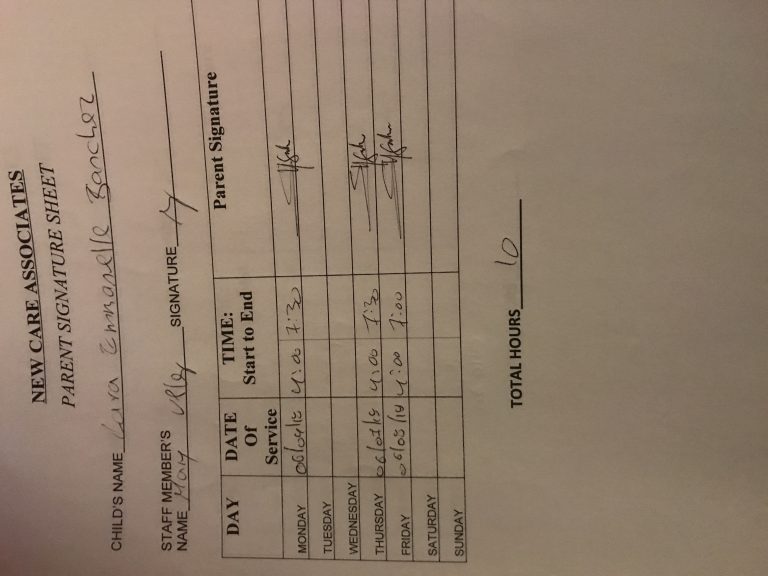 NEW CARE ASSOCIATES
PARENT SIGNATURE SHEET
CHILD'S NAME Emmanuelle
STAFF MEMBER'S
NAME Mary SIGNATURE
DAY DATE Of Service TIME: Start to End Parent Signature
MONDAY 06/04/18 4:00 7:30
TUESDAY
WEDNESDAY
THURSDAY 06/07/18 4:00 7:30
FRIDAY 06/08/18 4:00 7:00
SATURDAY
SUNDAY
TOTAL HOURS 10